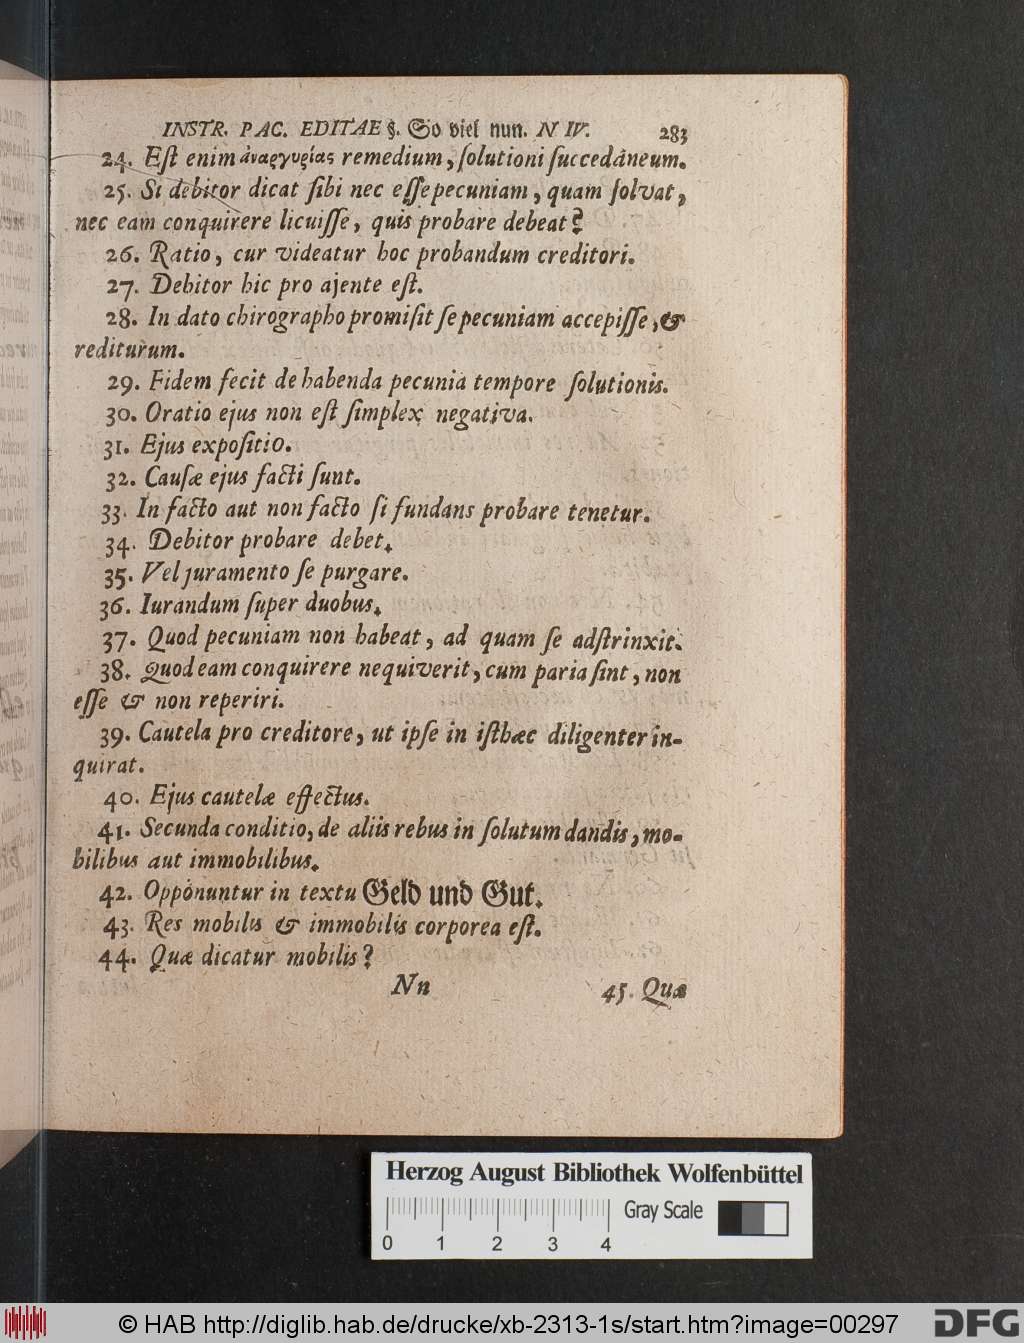 INSTR. PAC. EDITAE §. So viel nun. N IV. 283
24. Eſt enim ἀναργυρίας remedium, ſolutioni ſuccedaneum.
25. Si debitor dicat ſibi nec eſſe pecuniam, quam ſolvat,
nec eam conquirere licuiſſe, quis probare debeat?
26. Ratio, cur videatur hoc probandum creditori.
27. Debitor hic pro ajente eſt.
28. In dato chirographo promiſit ſe pecuniam accepiſſe, &
rediturum.
29. Fidem fecit de habenda pecunia tempore ſolutionis.
30. Oratio ejus non eſt ſimplex negativa.
31. Ejus expoſitio.
32. Cauſæ ejus facti ſunt.
33. In facto aut non facto ſi fundans probare tenetur.
34. Debitor probare debet.
35. Vel juramento ſe purgare.
36. Iurandum ſuper duobus.
37. Quod pecuniam non habeat, ad quam ſe adſtrinxit.
38. Quod eam conquirere nequiverit, cum paria ſint, non
eſſe & non reperiri.
39. Cautela pro creditore, ut ipſe in iſthæc diligenter in-
quirat.
40. Ejus cautelæ effectus.
41. Secunda conditio, de aliis rebus in ſolutum dandis, mo-
bilibus aut immobilibus.
42. Opponuntur in textu Geld und Gut.
43. Res mobilis & immobilis corporea eſt.
44. Quæ dicatur mobilis?
Nn 45. Quæ
Herzog August Bibliothek Wolfenbüttel
Gray Scale
0 1 2 3 4
© HAB http://diglib.hab.de/drucke/xb-2313-1s/start.htm?image=00297
DFG